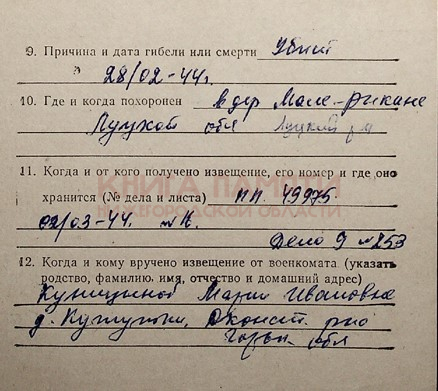 9. Причина и дата гибели или смерти Убит
28/02-44г.
10. Где и когда похоронен в дер Мале-Рикане
Луцкой обл Луцкий р-н
11. Когда и от кого получено извещение, его номер и где оно
КНИГА ПАМЯТИ
хранится (№ дела и листа) ПП. 49975.
НИЖЕГОРОДСКОЙ ОБЛАСТИ
02/03-44. № 
Дело 9 № 253
12. Когда и кому вручено извещение от военкомата (указать
родство, фамилию, имя, отчество и домашний адрес)
Куницыной Марии Ивановне
д. Сокольск. р-на
Горьк обл